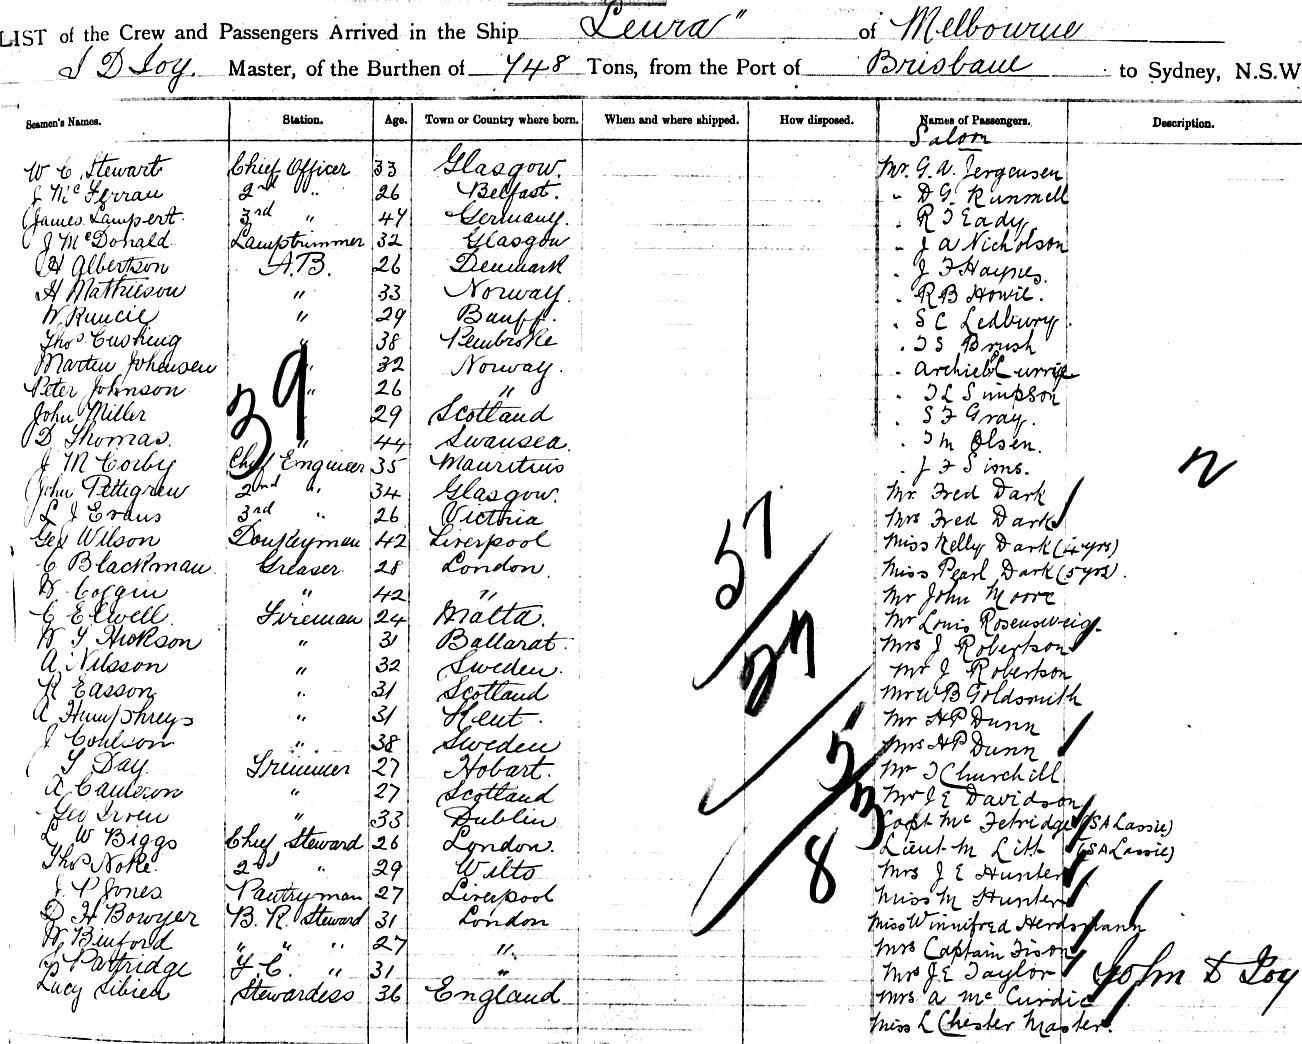 LIST of the Crew and Passengers Arrived in the Ship "Leura" of Melbourne
J D Joy. Master, of the Burthen of 748 Tons, from the Port of Brisbane to Sydney, N.S.W
Seamen's Names. Station. Age. Town or Country where born. When and where shipped. How disposed. Names of Passengers. Description.
Saloon
W C Stewart Chief Officer 33 Glasgow. Mr. G. W. Jergensen
J McFerran 2nd " 26 Belfast. " D G. Rummell
James Lampert. 3rd " 47 Germany. " R J Eady
J McDonald Lamptrimmer 32 Glasgow " J A Nicholson
H Albertson A.B. 26 Denmark " J F Haynes.
H Mathieson " 33 Norway. " R B Howie.
W. Runcie " 29 Banff. " S C Ledbury.
Thos Cushing " 38 Pembroke " J S Brush
Martin Johansen " 32 Norway. " Archied Currie
Peter Johnson " 26 " " J L Simpson
John Miller 29 Scotland " S F Gray.
D Thomas. " 44 Swansea. " J M Olsen.
39
J M Corby Chief Engineer 35 Mauritius " J F Sims.
John Pettigrew 2nd " 34 Glasgow. Mr Fred Dark
L J Evans 3rd " 26 Victoria Mrs Fred Dark
Geo Wilson Donkeyman 42 Liverpool Miss Nelly Dark (4 yrs)
C Blackman Greaser 28 London Miss Pearl Dark (5 yrs).
W. Coggin " 42 " Mr John Moore
C Elwell. Fireman 24 Malta. Mr Louis Rosensweig.
W J Hickson " 31 Ballarat. Mrs J Robertson
A Nilsson " 32 Sweden. Mr J Robertson
R Easson " 31 Scotland Mr W B Goldsmith
A Humphreys " 31 Kent. Mr H P Dunn
J Coulson " 38 Sweden Mrs H P Dunn
J Day Trimmer 27 Hobart. Mr J Churchill
A Cameron " 27 Scotland Mr J E Davidson
Geo Irven " 33 Dublin Capt McFetridge (SA Lassie)
L W Biggs Chief Steward 26 London. Lieut M Litt (SA Lassie)
Thos Noke. 2nd " 29 Wilts Mrs J E Hunter
J P Jones Pantryman 27 Liverpool Miss M Hunter
D H Bowyer B. R. Steward 31 London Miss Winnifred Herdsmann
W Binford " " " 27 " Mrs Captain Tison
Partridge F. C. " 31 " Mrs J E Taylor
Lucy Stewardess 36 England Mrs A McCurdie
Miss L Chester Master.
57
27
53
8
2
John D Joy